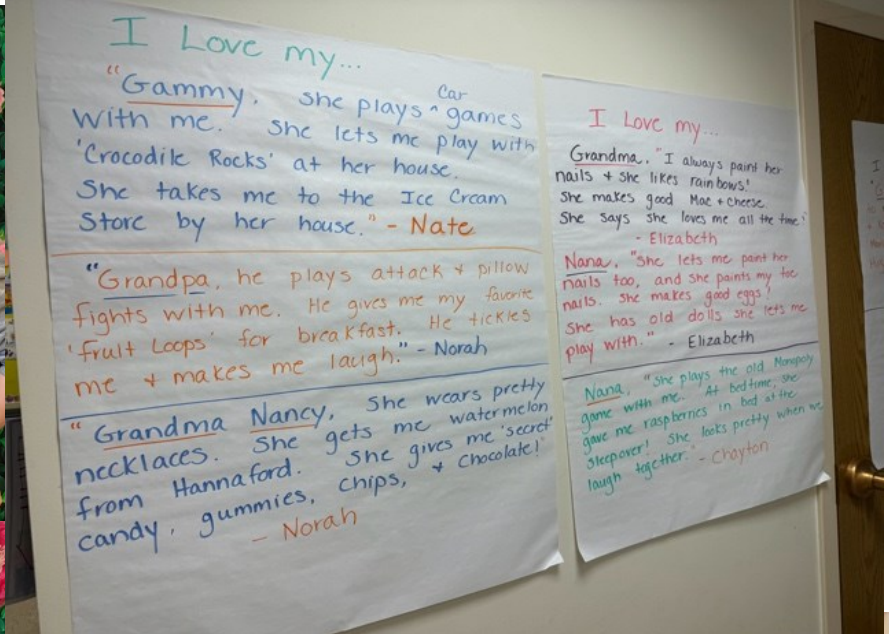 I Love my...
"Gammy, she plays ^ car games
with me. She lets me play with
'Crocodile Rocks' at her house.
She takes me to the Ice Cream
Store by her house." - Nate
"Grandpa, he plays attack + pillow
fights with me. He gives me my favorite
'fruit Loops' for breakfast. He tickles
me + makes me laugh." - Norah
"Grandma Nancy, she wears pretty
necklaces. She gets me watermelon
from Hannaford. She gives me 'secret'
candy, gummies, chips, + chocolate!"
- Norah
I Love my...
Grandma, "I always paint her
nails + she likes rainbows!
She makes good Mac + cheese.
She says she loves me all the time!"
- Elizabeth
Nana, "She lets me paint her
nails too, and she paints my toe
nails. She makes good eggs!
She has old dolls she lets me
play with." - Elizabeth
Nana, "She plays the old Monopoly
game with me. At bedtime, she
gave me raspberries in bed at the
sleepover! She looks pretty when we
laugh together." - Chayton
I